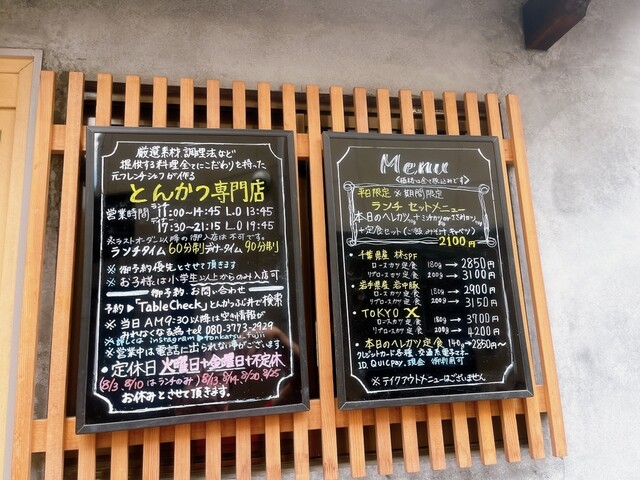 厳選素材、調理法など
提供する料理全てにこだわりを持った
元フレンチシェフが作る
とんかつ専門店
営業時間 ランチ 11:00〜14:45 L.O 13:45
ディナー 17:30〜21:15 L.O 19:45
※ラストオーダー以降の御入店は不可です。
ランチタイム 60分制 ディナータイム 90分制
※御予約優先とさせて頂きます
※お子様は小学生以上からのみ入店可
御予約、お問い合わせ
予約▶「TableCheck」とんかつふじ井で検索
※当日AM9:30以降は空き情報が
みれなくなる為 tel 080-3773-2929
※詳しくは instagram▶tonkatsu_fujii
※営業中は電話に出られない事がございます。
・定休日 火曜日+金曜日+不定休
(8/3、8/10はランチのみ) 8/13、8/14、8/20、8/25
お休みとさせて頂きます。
Menu
<価格は全て税込みです>
平日限定 ※期間限定
ランチ セットメニュー
本日のヘレカツ1ヶ+ミンチカツorささみカツ
+定食セット(ご飯みそ汁キャベツ)
2100円
・千葉県産 林SPF
ロースカツ定食 180g→2850円
リブロースカツ定食 200g→3100円
・岩手県産 岩中豚
ロースカツ定食 180g→2900円
リブロースカツ定食 200g→3150円
・TOKYO X
ロースカツ定食 180g→3700円
リブロースカツ定食 200g→4200円
・本日のヘレカツ定食 140g→2850円〜
クレジットカード各種、交通系電子マネー
ID、QUICPay、現金 御利用可
※テイクアウトメニューはございません。